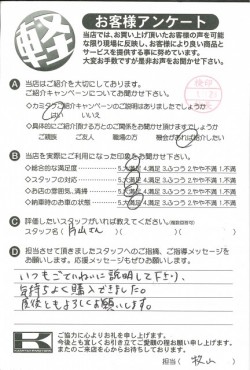 軽
お客様アンケート
当店では、お買い上げ頂いたお客様の声を可能
な限り現場に反映し、お客様により良い商品と
サービスを提供する事に努めています。
大変お手数ですが是非お声をお聞かせ下さい。
A 当店はご紹介を大切にしております。
ご紹介キャンペーンについてお聞かせ下さい。
◇カミタケご紹介キャンペーンのご説明はありましたでしょうか
はい いいえ
◇具体的にご紹介頂ける方とのご関係をお聞かせ頂けますでしょうか
ご親族 ご友人 職場の方 機会があれば紹介したい
B 当店を実際にご利用になった印象をお聞かせ下さい。
◇総合的な満足度 5.大満足 4.満足 3.ふつう 2.やや不満 1.不満
◇スタッフの対応 5.大満足 4.満足 3.ふつう 2.やや不満 1.不満
◇お店の雰囲気、清掃 5.大満足 4.満足 3.ふつう 2.やや不満 1.不満
◇納車時のお車の状態 5.大満足 4.満足 3.ふつう 2.やや不満 1.不満
C 評価したいスタッフがいればお聞かせ下さい。
スタッフ名( 片山さん )
D 担当させて頂きましたスタッフへのご指摘、ご指導メッセージを
お願いします。応援メッセージもぜひお願いします。
いつもていねいに説明して下さり、
気持ちよく購入できました。
今後ともよろしくお願いします。
K
ご協力に心よりお礼を申し上げます。
今後とも宜しくお引き立てご愛顧の程お願い申し上げます。
またのご来店を心からお待ちしております。
担当( 片山 )